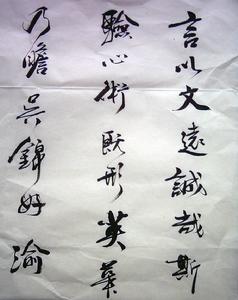 言以文遠誠哉斯
驗心術既形英華
乃瞻吳錦好渝